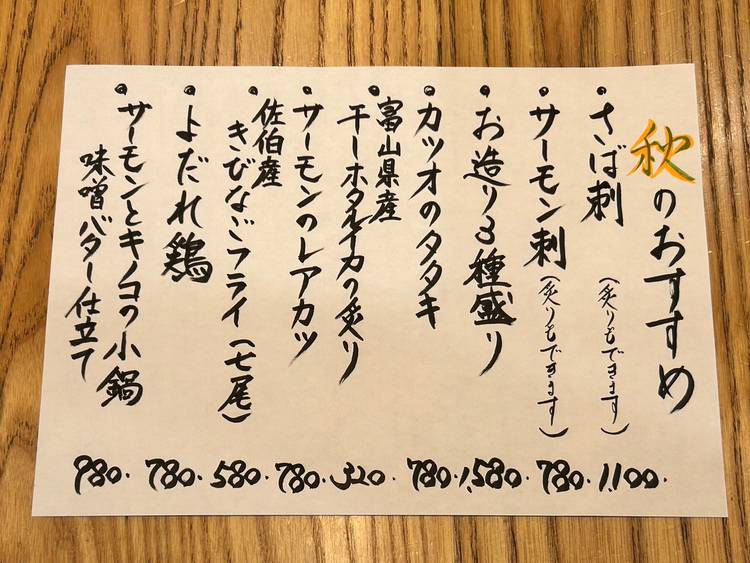 秋のおすすめ
・さば刺(炙りもできます) 1,100.
・サーモン刺(炙りもできます) 780.
・お造り3種盛り 1,580.
・カツオのタタキ 780.
・富山県産
干しホタルイカの炙り 320.
・サーモンのレアカツ 780.
・佐伯産
きびなごフライ(七尾) 580.
・よだれ鶏 780.
・サーモンとキノコの小鍋
味噌バター仕立て 980.